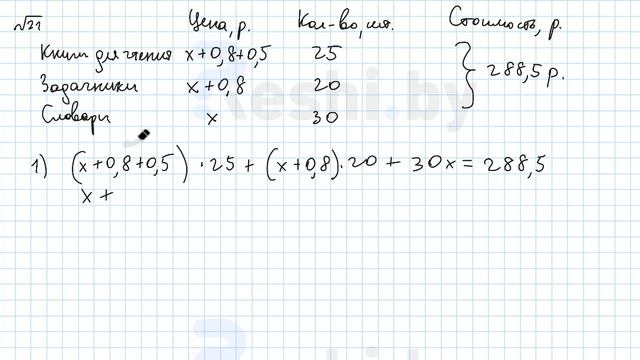 √21 Цена, р. Кол-во, шт. Стоимость, р.
Книги для чтения x+0,8+0,5 25
Задачники x+0,8 20 288,5 р.
Словари x 30
1) (x+0,8+0,5)·25+(x+0,8)·20+30x=288,5
x+
Reshi.by